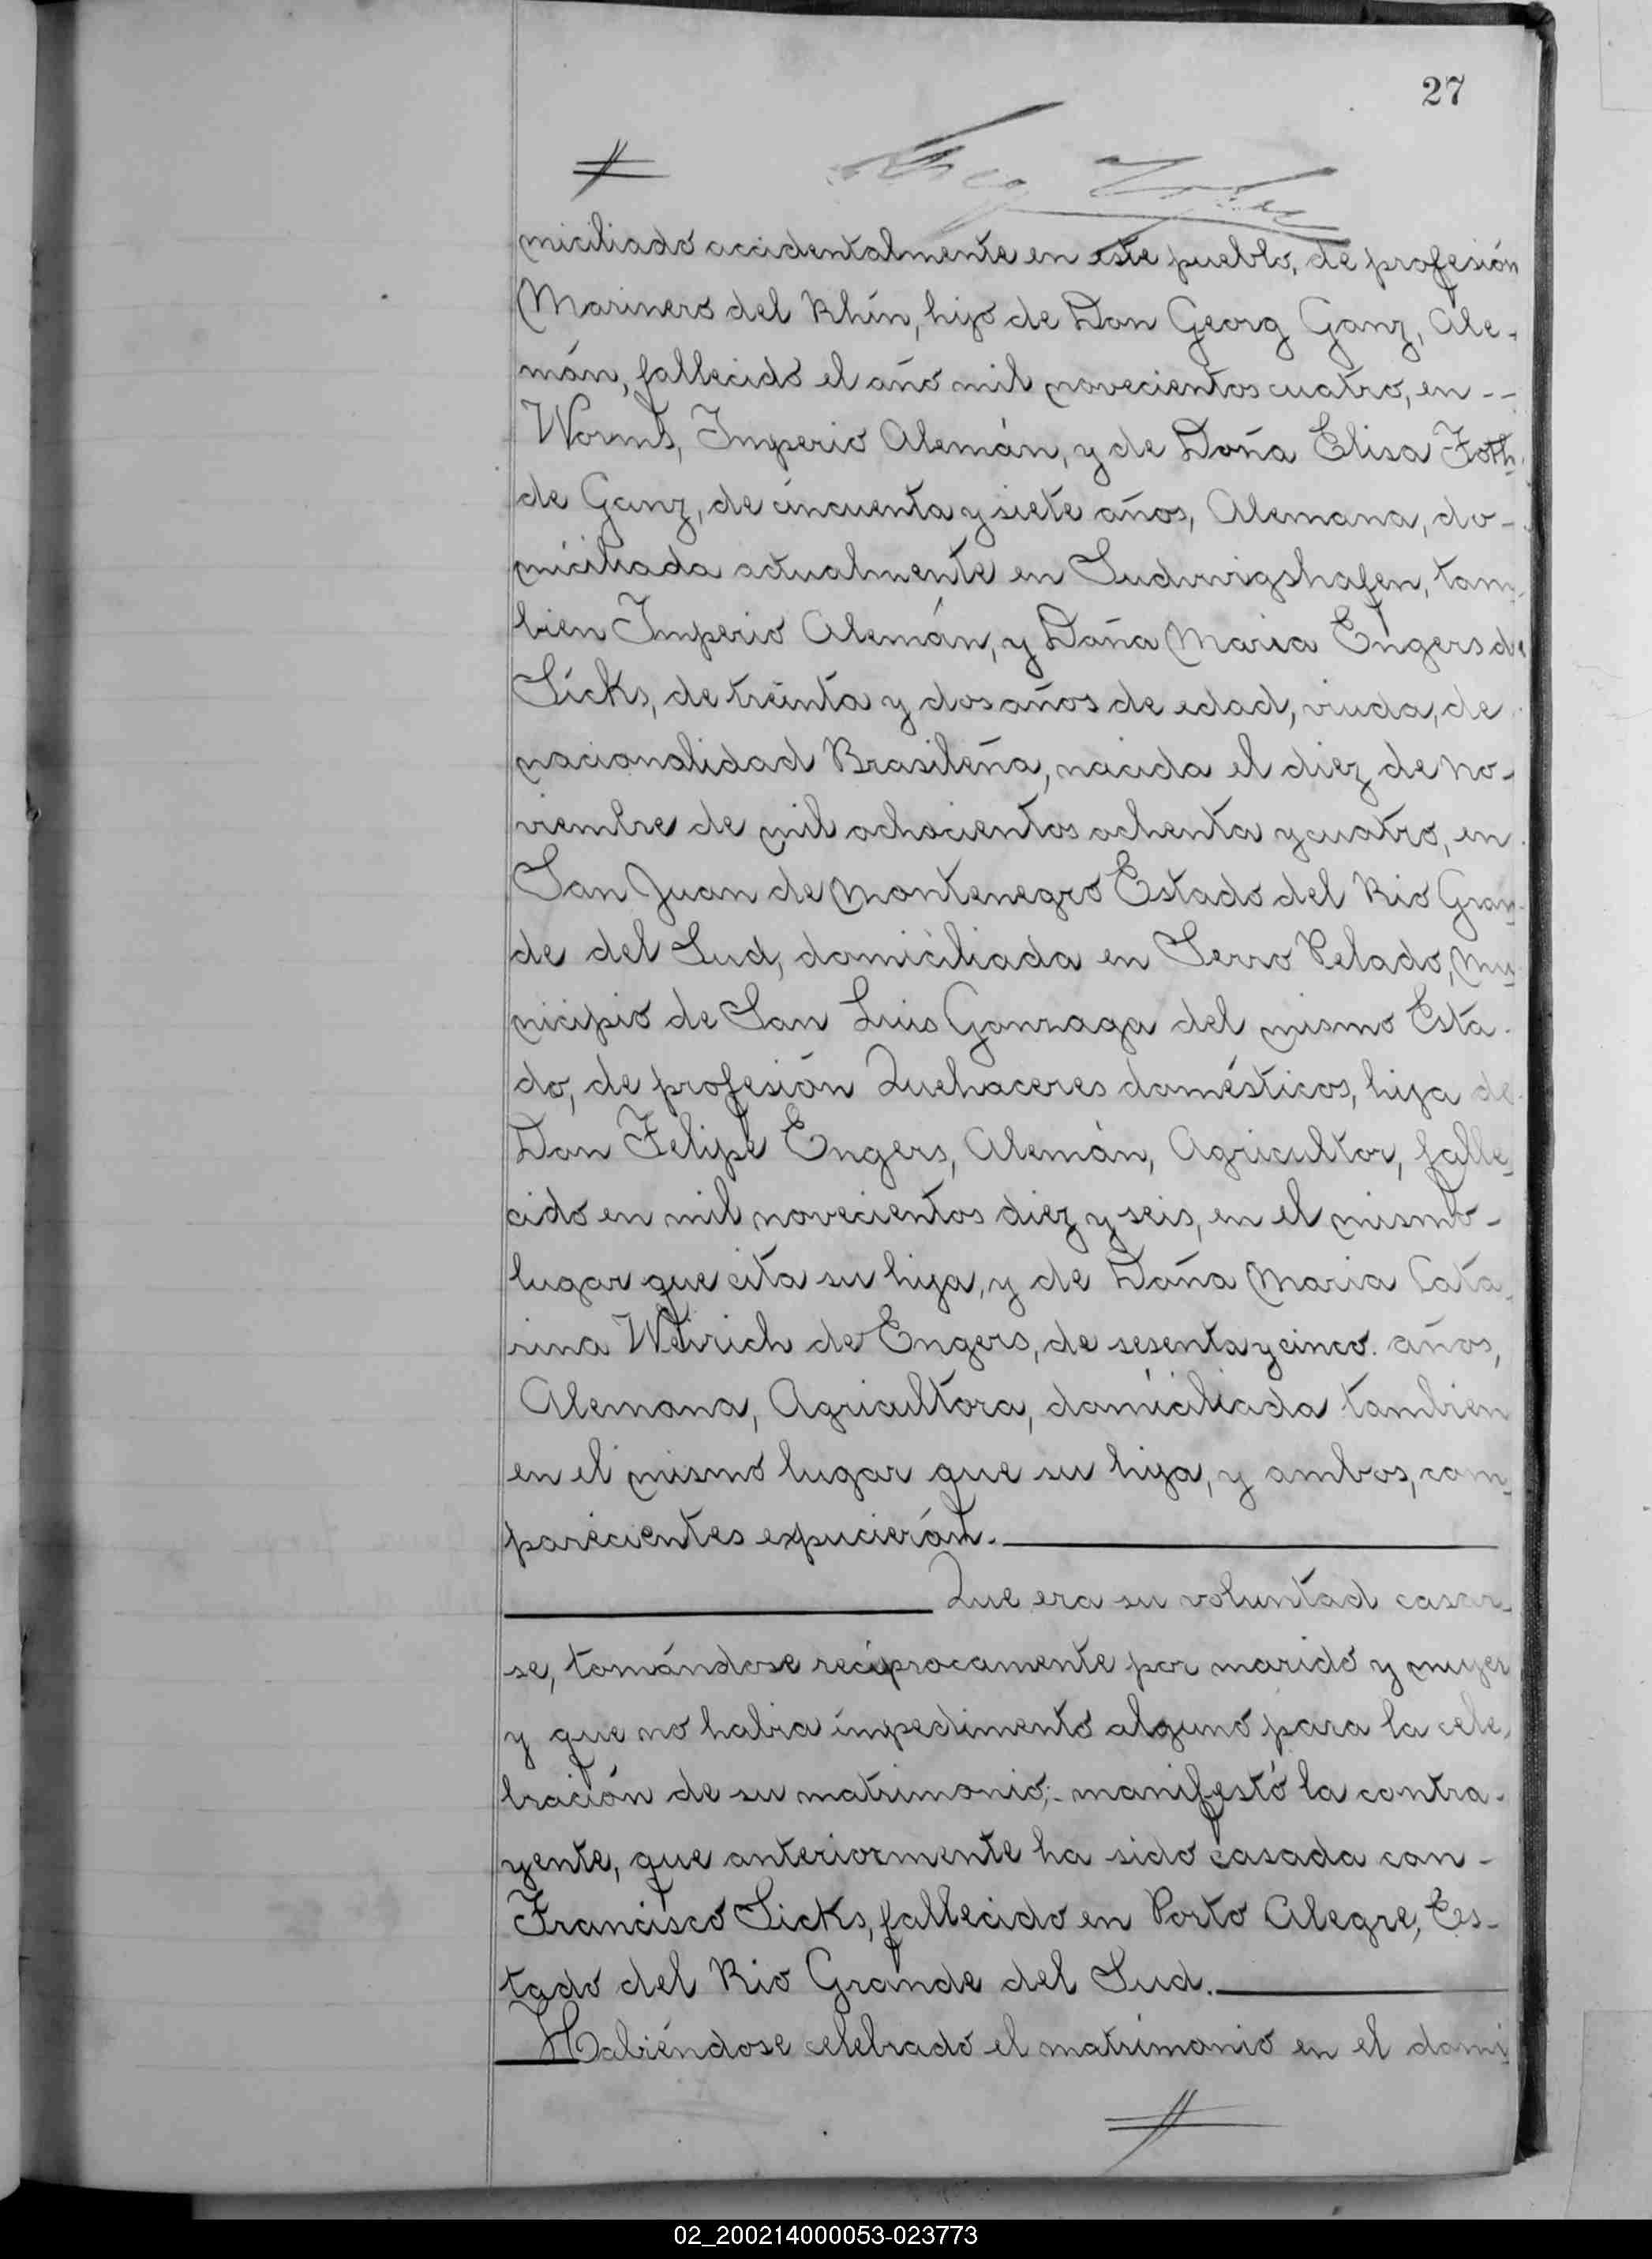 27
miciliado accidentalmente en este pueblo, de profesión
Marinero del Rhin, hijo de Don Georg Ganz, Ale-
mán, fallecido el año mil novecientos cuatro, en --
Worms, Imperio Alemán, y de Doña Elisa Foth
de Ganz, de cincuenta y siete años, Alemana, do-
miciliada actualmente en Ludwigshafen, tam-
bien Imperio Alemán, y Doña Maria Engers de
Sicks, de treinta y dos años de edad, viuda, de
nacionalidad Brasileña, nacida el diez de No-
viembre de mil ochocientos ochenta y cuatro, en
San Juan de Montenegro Estado del Rio Gran-
de del Sud, domiciliada en Serro Pelado, Mu-
nicipio de San Luis Gonzaga del mismo Esta-
do, de profesión Quehaceres domésticos, hija de
Don Felipe Engers, Alemán, Agricultor, falle-
cido en mil novecientos diez y seis, en el mismo-
lugar que cita su hija, y de Doña Maria Cata-
rina Weirich de Engers, de sesenta y cinco. años,
Alemana, Agricultora, domiciliada tambien
en el mismo lugar que su hija, y ambos, com-
parecientes expucierón.
Que era su voluntad casar-
se, tomándose reciprocamente por marido y mujer
y que no habia impedimento alguno para la cele-
bración de su matrimonio;- manifestó la contra-
yente, que anteriormente ha sido casada con -
Francisco Sicks, fallecido en Porto Alegre, Es-
tado del Rio Grande del Sud.
Habiéndose celebrado el matrimonio en el domi-
02_200214000053-023773